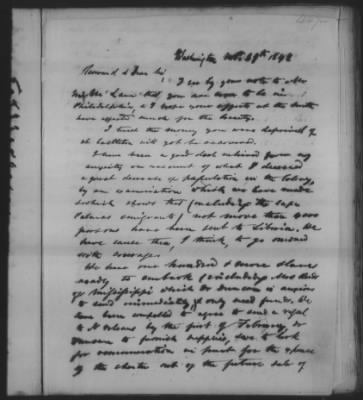 Washington Oct. 29th 1842
Reverend & Dear Sir,
I see by your note to Mr
that you are soon to be in
Philadelphia, & I hope your efforts at the South
have effected much for the Society.
I trust the money you were deprived of
at will yet be recovered.
I have been a good deal relieved from my
anxiety on account of what I deemed
a great decrease of population in the Colony,
by an examination which we have made
& which shows that (including the Cape
Palmas emigrants) not more than 4000
persons have been sent to Liberia. We
have cause then, I think, to go onward
with courage.
We have one hundred & more slaves
ready to embark (including Mrs
of Mississippi which Dr Duncan is anxious
to send immediately, & only need funds. We
have been compelled to agree to send a vessel
to N Orleans by the first of February, Dr
Duncan to furnish supplies, & we to look
for remuneration in part for the expense
of the charter out of the future sale of